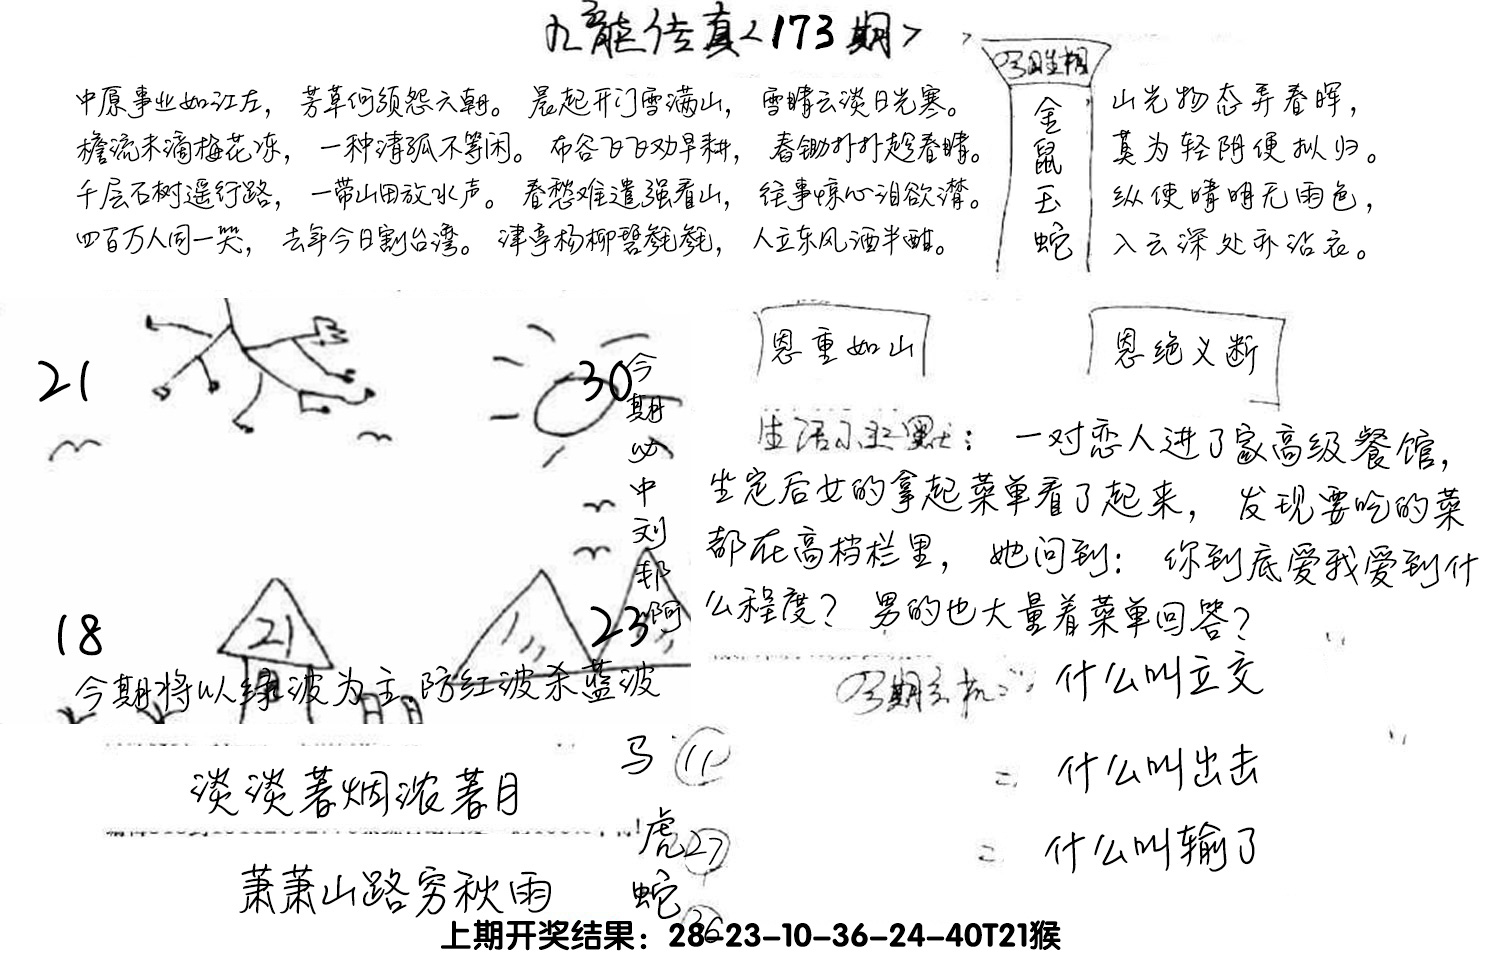 九龍传真<173期>
中原事业如江左，芳草何须怨六朝。晨起开门雪满山，雪晴云淡日光寒。
檐流未滴梅花冻，一种清孤不等闲。布谷飞飞劝早耕，春锄扑扑趁春晴。
千层石树遥行路，一带山田放水声。春愁难遣强看山，往事惊心泪欲潸。
四百万人同一哭，去年今日割台湾。津亭杨柳碧毵毵，人立东风酒半酣。
金鼠玉蛇
山光物态弄春晖，
莫为轻阴便拟归。
纵使晴明无雨色，
入云深处亦沾衣。
21
30
18
21
23
今期必中刘邦啊
今期将以绿波为主防红波杀蓝波
恩重如山
恩绝义断
生活小幽默：一对恋人进了家高级餐馆，
坐定后女的拿起菜单看了起来，发现要吃的菜
都在高档栏里，她问到：你到底爱我爱到什
么程度？男的也大量着菜单回答？
今期玄机：什么叫立交
= 什么叫出击
= 什么叫输了
马 11
虎 27
蛇 36
淡淡著烟浓著月
萧萧山路穷秋雨
上期开奖结果：28-23-10-36-24-40T21猴